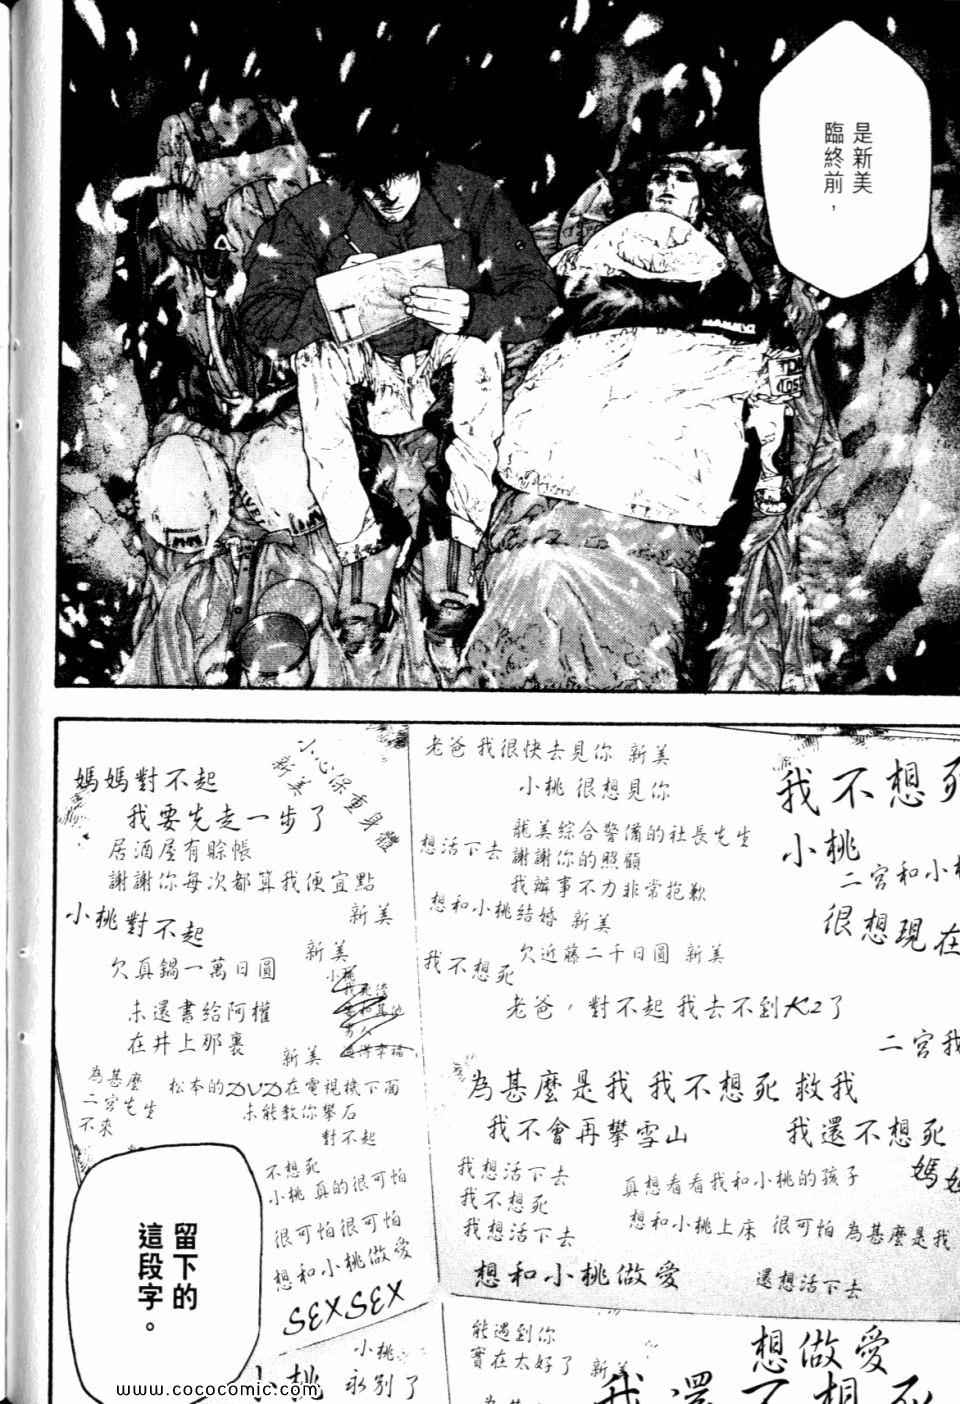 是新美
臨終前，
小心保重身體
媽媽對不起
我要先走一步了
居酒屋有賒帳
謝謝你每次都算我便宜點
新美
小桃對不起
新美
欠真鍋一萬日圓
未還書給阿權
在井上那裏
新美
為甚麼
二宮先生
不來
松本的DVD在電視機下面
未能教你攀石
對不起
不想死
小桃 真的很可怕
很可怕很可怕
想和小桃做愛
SEXSEX
小桃
永別了
小桃
老爸 我很快去見你 新美
小桃 很想見你
龍美綜合警備的社長先生
想活下去 謝謝你的照顧
我辦事不力非常抱歉
想和小桃結婚 新美
欠近藤二千日圓 新美
我不想死
老爸，對不起 我去不到K2了
為甚麼是我 我不想死 救我
我不會再攀雪山
我還不想死
我想活下去
我不想死
我想活下去
真想看看我和小桃的孩子
想和小桃上床 很可怕 為甚麼是我
想和小桃做愛
還想活下去
我不想死
小桃
二宮和小桃
很想現在
二宮我
媽媽
能遇到你
實在太好了 新美
想做愛
我還不想死
留下的
這段字。
www.cococomic.com
WWW.COCOCOMIC.COM